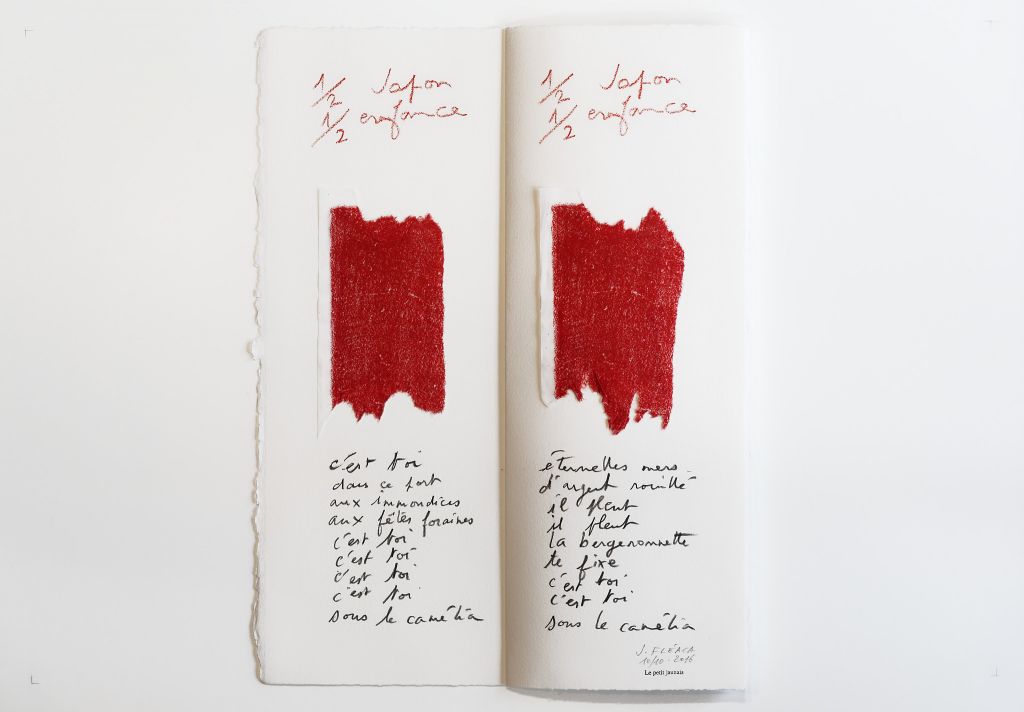 1/2 Japon
1/2 enfance
c'est toi
dans ce port
aux immondices
aux fêtes foraines
c'est toi
c'est toi
c'est toi
c'est toi
sous le camélia
1/2 Japon
1/2 enfance
éternelles mers
d'argent rouillé
il pleut
il pleut
la bergeronnette
te fixe
c'est toi
c'est toi
sous le camélia
10/10 - 2016
Le petit jaunais